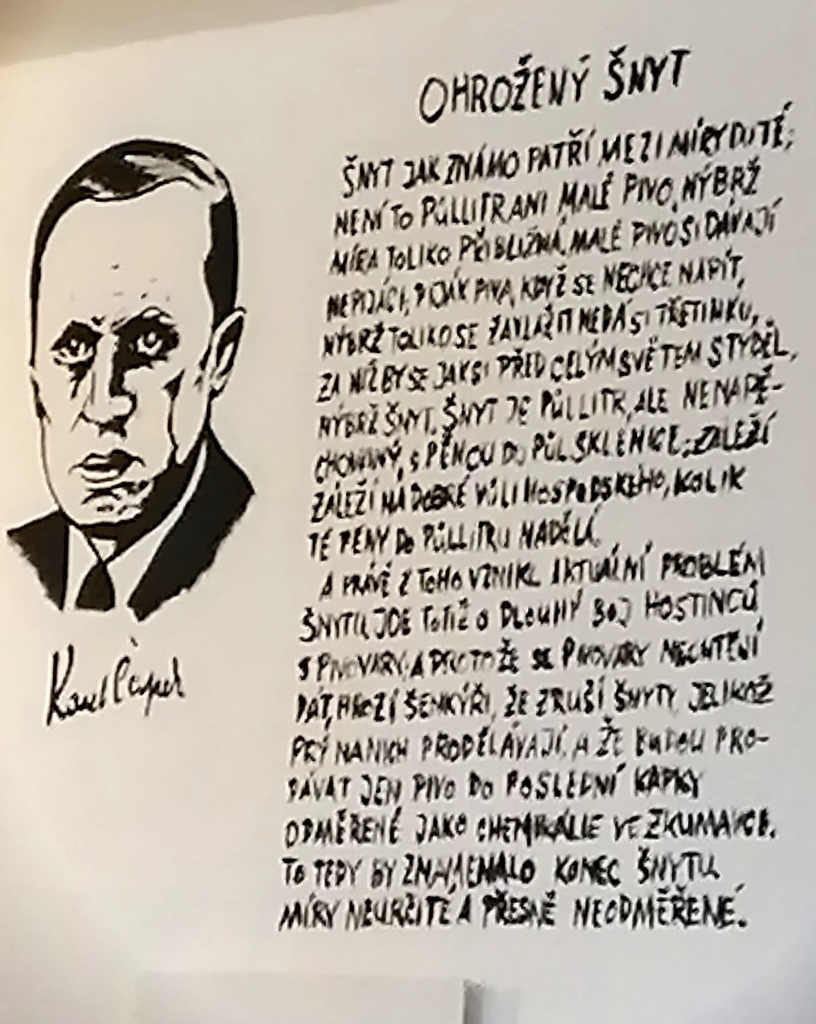 OHROŽENÝ ŠNYT
ŠNYT JAK ZNÁMO PATŘÍ MEZI MÍRY DUTÉ;
NENÍ TO PŮLLITR ANI MALÉ PIVO, NÝBRŽ
MÍRA TOLIKO PŘIBLIŽNÁ. MALÉ PIVO SI DÁVAJÍ
NEPIJÁCI, PIJÁK PIVA, KDYŽ SE NECHCE NAPÍT,
NÝBRŽ TOLIKO SE ZAVLAŽIT NEDÁ SI TŘETINKU,
ZA NIŽ BY SE JAKSI PŘED CELÝM SVĚTEM STYDĚL,
NÝBRŽ ŠNYT. ŠNYT JE PŮLLITR, ALE NENAPĚ-
CHOVANÝ, S PĚNOU DO PŮL SKLENICE; ZÁLEŽÍ
ZÁLEŽÍ NA DOBRÉ VŮLI HOSPODSKÉHO, KOLIK
TÉ PĚNY DO PŮLLITRU NADĚLÁ.
A PRÁVĚ Z TOHO VZNIKL AKTUÁLNÍ PROBLÉM
ŠNYTU. JDE TOTIŽ O DLOUHÝ BOJ HOSTINCŮ
S PIVOVARY. A PROTOŽE SE PIVOVARY NECHTĚJÍ
DÁT, HROZÍ ŠENKÝŘI, ŽE ZRUŠÍ ŠNYTY, JELIKOŽ
PRÝ NA NICH PRODĚLÁVAJÍ, A ŽE BUDOU PRO-
DÁVAT JEN PIVO DO POSLEDNÍ KAPKY
ODMĚŘENÉ JAKO CHEMIKÁLIE VE ZKUMAVCE.
TO TEDY BY ZNAMENALO KONEC ŠNYTU,
MÍRY NEURČITÉ A PŘESNĚ NEODMĚŘENÉ.
Karel Čapek